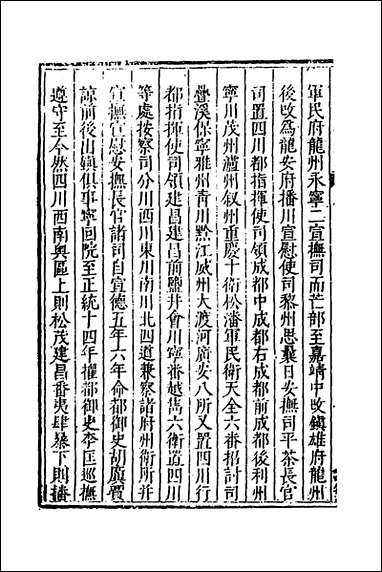 軍民府龍州永寧二宣撫司而芒部至嘉靖中改鎮雄府龍州
後改爲龍安府播川宣慰使司黎州思曩日安撫司平茶長官
司置四川都指揮使司領成都中成都右成都前成都後利州
寧川茂州瀘州叙州重慶十衛松潘軍民衛天全六番招討司
疊溪保寧雅州青川黔江威州大渡河廣安八所又置四川行
都指揮使司領建昌建昌前鹽井會川寧番越雋六衛置四川
等處按察司分川西川東川南川北四道兼察諸府州衛所并
宣撫宣慰安撫長官諸司自宣德五年六年命都御史胡廙賈
諒前後出鎮俱事寧回院至正統十四年擢都御史李匡巡撫
遵守至今然四川西南奥區上則松茂建昌番夷肆暴下則播